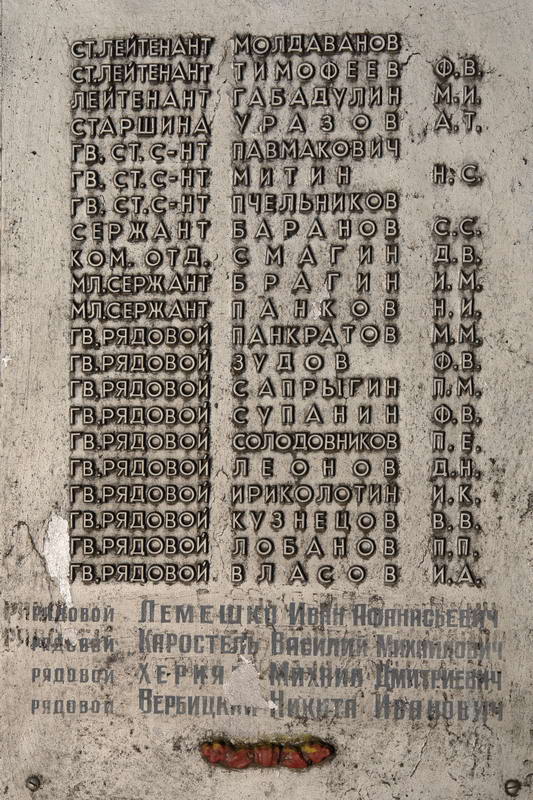 СТ. ЛЕЙТЕНАНТ МОЛДАВАНОВ
СТ. ЛЕЙТЕНАНТ ТИМОФЕЕВ Ф.В.
ЛЕЙТЕНАНТ ГАБАДУЛИН М.И.
СТАРШИНА УРАЗОВ А.Т.
ГВ. СТ. С-НТ ПАВМАКОВИЧ
ГВ. СТ. С-НТ МИТИН Н.С.
ГВ. СТ. С-НТ ПЧЕЛЬНИКОВ
СЕРЖАНТ БАРАНОВ С.С.
КОМ. ОТД. СМАГИН Д.В.
МЛ. СЕРЖАНТ БРАГИН И.М.
МЛ. СЕРЖАНТ ПАНКОВ Н.И.
ГВ. РЯДОВОЙ ПАНКРАТОВ М.М.
ГВ. РЯДОВОЙ ЗУДОВ Ф.В.
ГВ. РЯДОВОЙ САПРЫГИН П.М.
ГВ. РЯДОВОЙ СУПАНИН Ф.В.
ГВ. РЯДОВОЙ СОЛОДОВНИКОВ П.Е.
ГВ. РЯДОВОЙ ЛЕОНОВ Д.Н.
ГВ. РЯДОВОЙ ИРИКОЛОТИН И.К.
ГВ. РЯДОВОЙ КУЗНЕЦОВ В.В.
ГВ. РЯДОВОЙ ЛОБАНОВ П.П.
ГВ. РЯДОВОЙ ВЛАСОВ И.А.
РЯДОВОЙ ЛЕМЕШКО ИВАН АФАНАСЬЕВИЧ
РЯДОВОЙ КАРОСТЕЛЬ ВАСИЛИЙ МИХАЙЛОВИЧ
РЯДОВОЙ МИХАИЛ ДМИТРИЕВИЧ
РЯДОВОЙ ВЕРБИЦКИЙ НИКИТА ИВАНОВИЧ